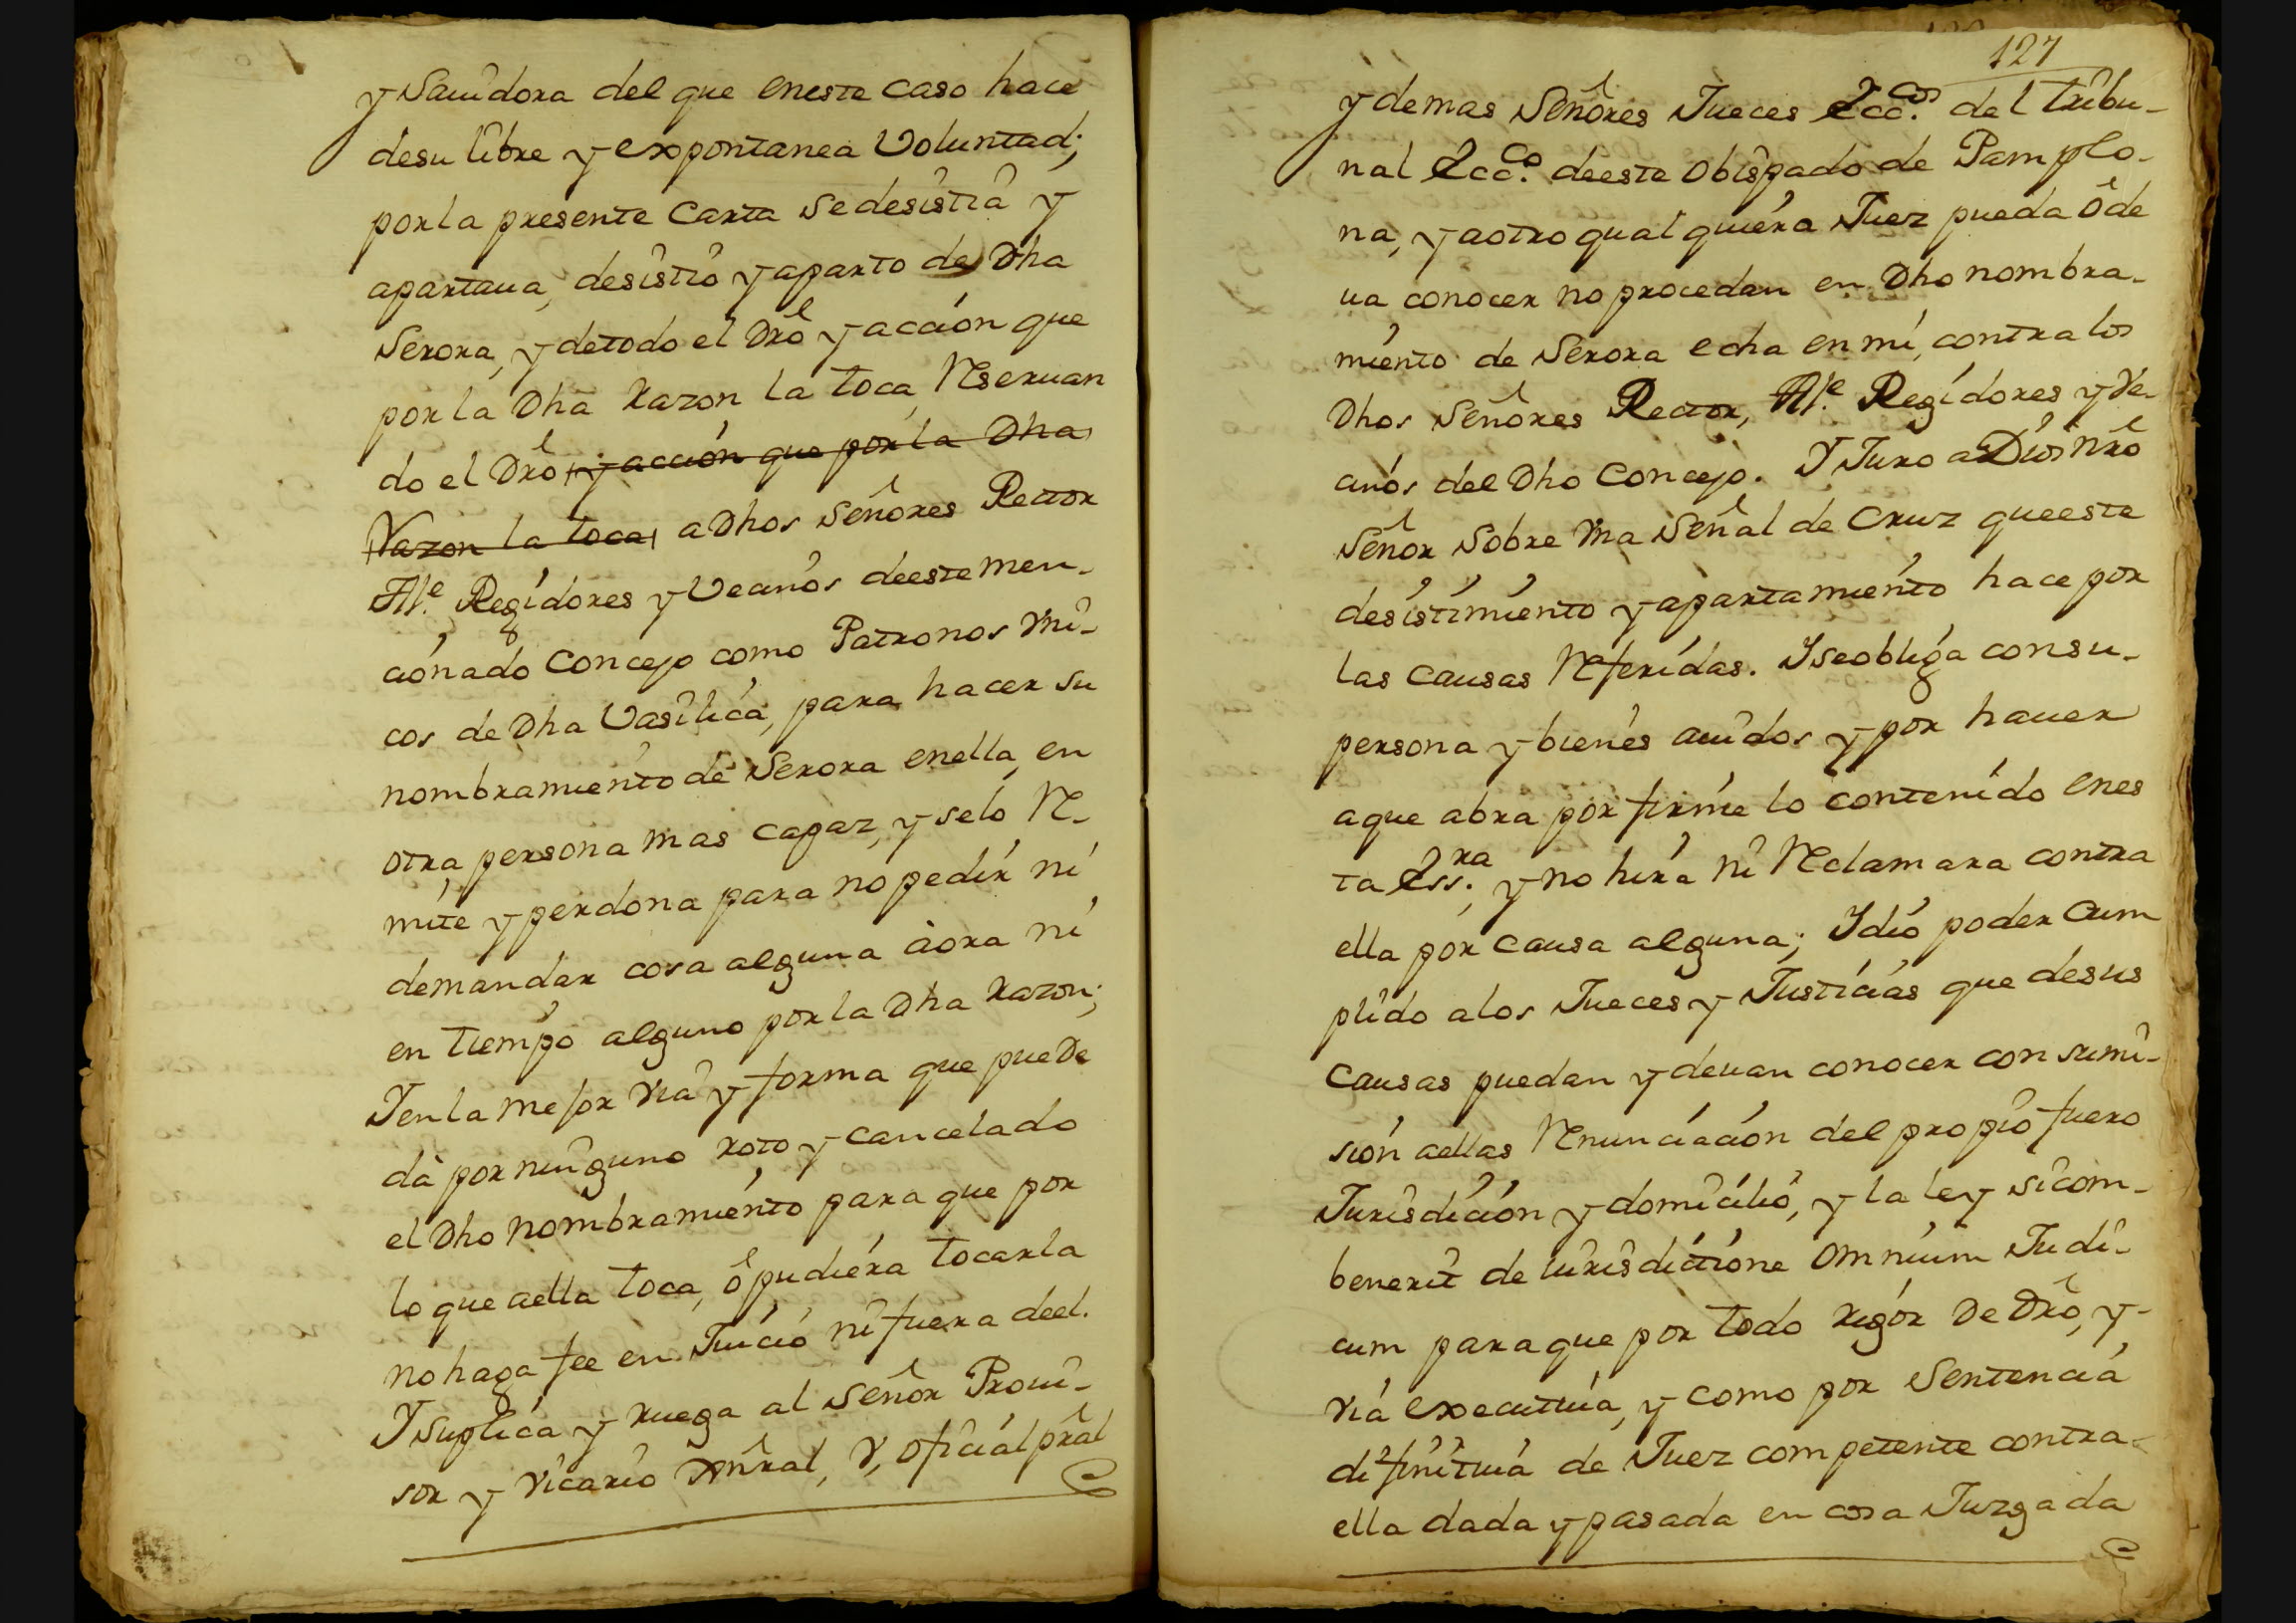 y Sauidora del que eneste caso hace
desu libre y expontanea Voluntad;
porla presente Carta Sedesistia y
apartaua, desistio y aparto de Dha
Serora, y detodo el Dro y accion que
porla Dha razon la toca, Reseruan
do el Dro, y accion que porla Dha
Razon la toca, a Dhos Señores Rector
Alc.e Regidores y Vecinos deeste men-
cionado Concejo como Patronos Vni-
cos de Dha Vasilica, para hacer su
nombramiento de Serora enella, en
otra persona mas capaz, y selo Re-
mite y perdona para no pedir ni
demandar cosa alguna àora ni
en tiempo alguno porla Dha razon;
Y en la mejor via y forma que puede
dà por ninguno roto y cancelado
el Dho nombramiento para que por
lo que aella toca, ô pudiera tocarla
no haga fee en Juicio ni fuera deel.
Y suplica y ruega al Señor Proui-
sor y Vicario Gñral, y, oficial pñal
127
y demas Señores Jueces Ecc.cos del tribu-
nal Ecc.co deeste Obispado de Pamplo-
na, y aotro qual quiera Juez pueda ô de
ua conocer no procedan en Dho nombra-
miento de Serora echa en mi, contra los
Dhos Señores Rector, Alc.e Regidores y Ve-
cinos del Dho Concejo. Y Juro a Dios nrô
Señor Sobre Vna Señal de Cruz queeste
desistimiento y apartamiento hace por
las causas Referidas. Y seobliga consu-
persona y bienes auidos y por hauer
aque abra por firme lo contenido enes
ta Ess.ra y no hira ni Reclamara contra
ella por causa alguna; Y dio poder Cum
plido alos Jueces y Justicias que desus
causas puedan y deuan conocer con sumi-
sion aellas Renunciacion del propio fuero
Jurisdicion y domicilio, y la ley sicom-
benerit de iurisdictione omnium Judi-
cum para que por todo rigor De Drô, y-
via executiua, y como por Sentencia
difinitiua de Juez competente contra-
ella dada y pasada en cosa Juzgada